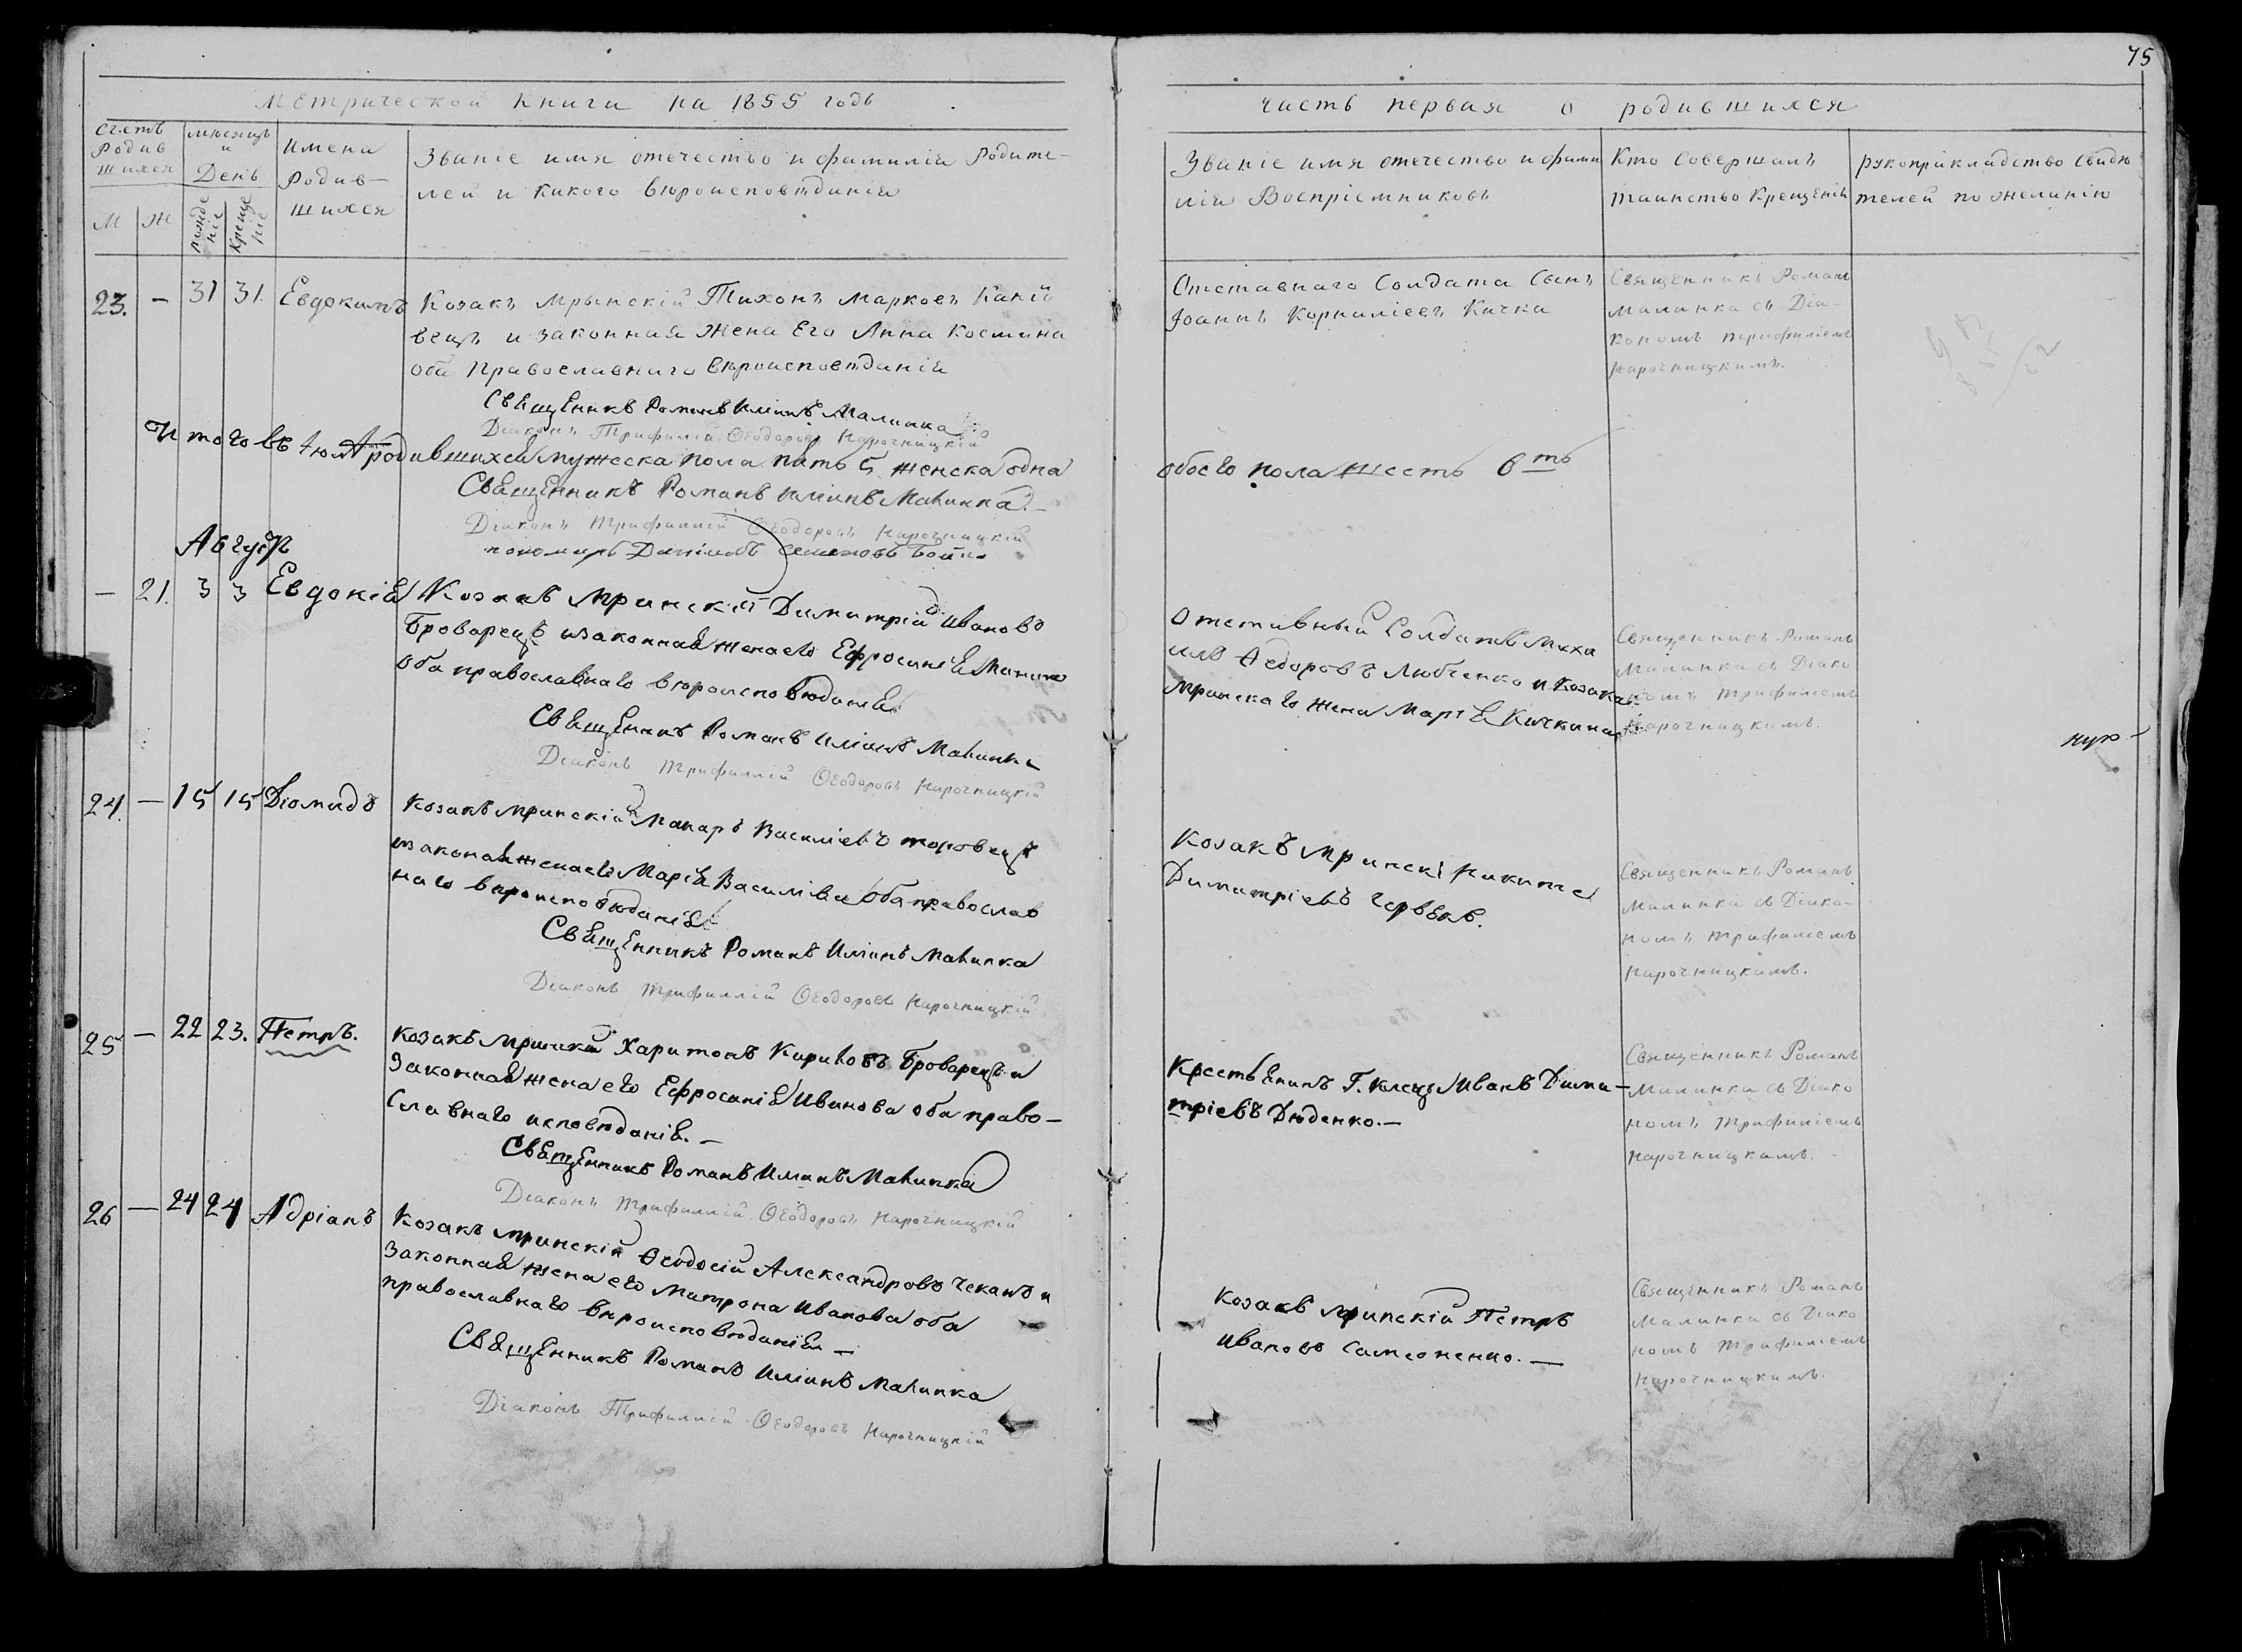 75
Метрической книги на 1855 годъ
часть первая о родившихся
Счетъ Родив шихся
М Ж
мѣсяцъ и День
рожде ніе
Креще ніе
Имена Родив- шихся
Званіе имя отечество и фамилія Родите-
лей и какого вѣроисповѣданія
Званіе имя отечество и фами
лія Воспріемниковъ
Кто совершалъ
таинство Крещенія
рукоприкладство свидѣ
телей по желанію
23. — 31 31. Евдокимъ
Козакъ Мрынскій Тихонъ Марковъ
вецъ и законная жена Его Анна Космина
оба Православнаго вѣроисповѣданія
Священникъ Романъ Иліинъ Малинка
Діаконъ Трифиллій Ѳеодоровъ Нарочницкій
Отставнаго Солдата Сынъ
Іоаннъ Корниліевъ Кичка
Священникъ Романъ
Малинка съ Діа-
кономъ Трифиліемъ
Нарочницкимъ.
Итого въ родившихся мужеска пола пять 5 женска одна
обоего пола шесть 6ть
Священникъ Романъ Иліинъ Малинка. —
Діаконъ Трифиллій Ѳеодоровъ Нарочницкій
пономарь Даніилъ Семеновъ
Августъ
— 21. 3 3 Евдокія
Козакъ Мринскій Димитрій Ивановъ
Броварецъ и законная жена его Ефросинія
оба православнаго вѣроисповѣданія
Священникъ Романъ Иліинъ Малинка
Діаконъ Трифиллій Ѳеодоровъ Нарочницкій
Отставный Солдатъ Миха
илъ Ѳедоровъ Любченко и козака
Мринскаго жена Марія Кичкина
Священникъ Романъ
Малинка съ Діако
номъ Трифиліемъ
Нарочницкимъ.
24. — 15 15 Діомидъ
Козакъ Мринскій Макаръ Василіевъ
и законая жена его Марія Василіва оба православ
наго вѣроисповѣданія
Священникъ Романъ Иліинъ Малинка
Діаконъ Трифиллій Ѳеодоровъ Нарочницкій
Козакъ Мринскі Никита
Димитріевъ Червякъ.
Священникъ Романъ
Малинка съ Діако-
номъ Трифиліемъ
Нарочницкимъ.
25 — 22 23. Петръ.
Козакъ Мринскій Харитонъ Кириловъ Броварецъ и
Законная жена его Ефросинія Иванова оба право-
славнаго исповѣданія. —
Священникъ Романъ Иліинъ Малинка
Діаконъ Трифиллій Ѳеодоровъ Нарочницкій
Крестьянинъ Г. Иванъ Дими-
тріевъ Дяденко. —
Священникъ Романъ
Малинка съ Діако
номъ Трифиліемъ
Нарочницкимъ.
26 — 24 24 Адріанъ
Козакъ Мринскій Ѳеодосій Александровъ Чеканъ и
Законная жена его Матрона Иванова оба
православнаго вѣроисповѣданія —
Священникъ Романъ Иліинъ Малинка
Діаконъ Трифиллій Ѳеодоровъ Нарочницкій
Козакъ Мринскій Петръ
Ивановъ Самсоненко. —
Священникъ Романъ
Малинка съ Діако
номъ Трифиліемъ
Нарочницкимъ.